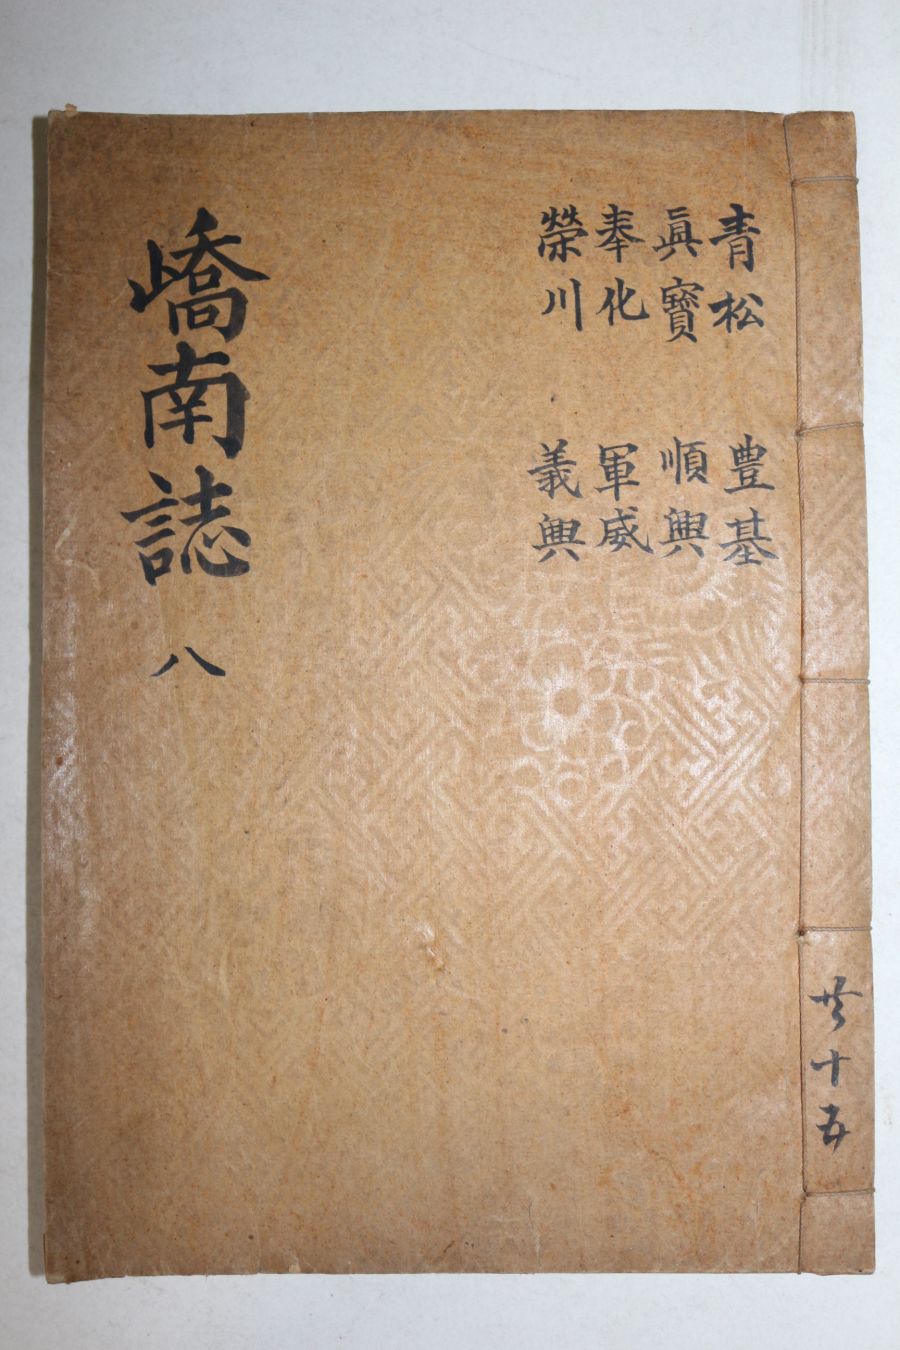 青松
眞寶
奉化
榮川
豊基
順興
軍威
義興
嶠南誌 八
共十五